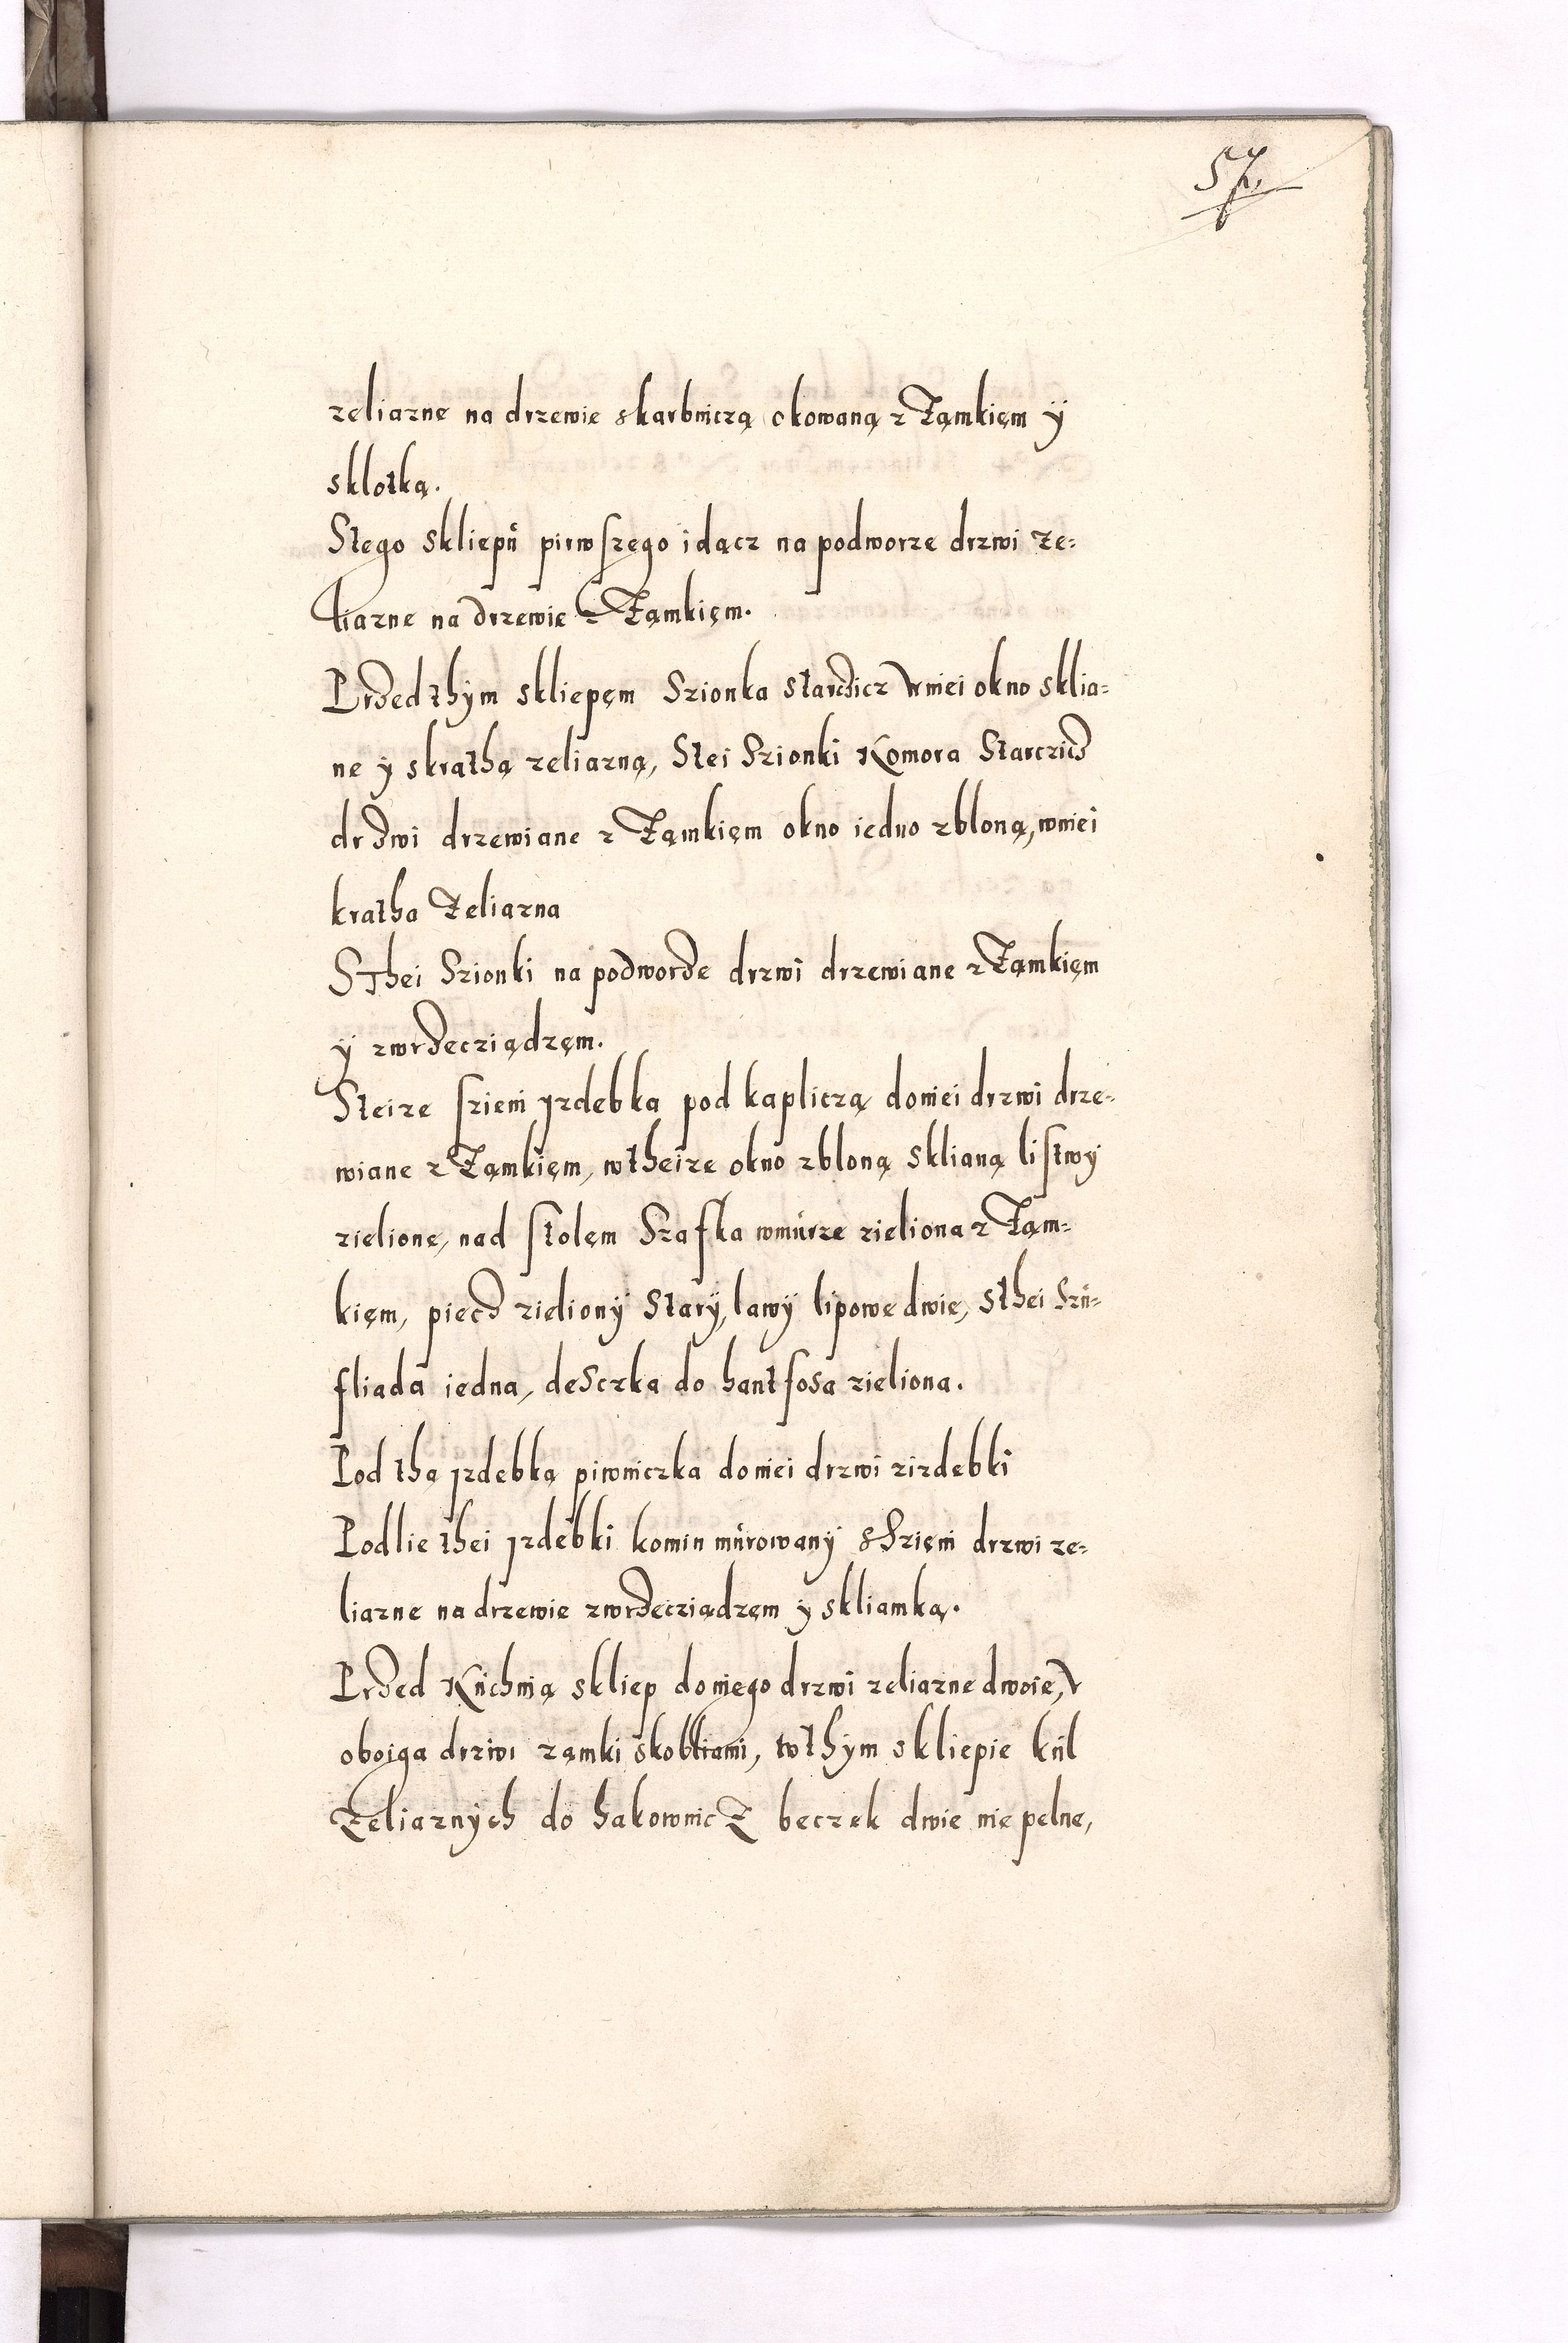 57.
zeliazne na drzewie skarbniczą okowaną z Zamkięm ÿ
sklotką.
Stego skliepú pirwszego idącz na podworze drzwi ze=
liazne na drzewie z Zamkięm.
Przed thÿm skliepęm Szionka starczicz wniei okno sklia=
ne y skrathą zeliazną, Stei Szionki Komora Starczicz
drzwi drzewiane z Zamkięm okno iedno zbloną, wniei
kratha Zeliazna
Sthei Szionki na podworze drzwi drzewiane z Zamkięm
ÿ zwrzecziądzęm.
Steize szieni yzdebka pod kapliczą doniei drzwi drze=
wiane z Zamkięm, wtheize okno zbloną sklianą listwÿ
zielione, nad stolęm Szafka wmúrze zieliona z Zam=
kięm, piecz zielionÿ Starÿ, lawÿ lipowe dwie, Sthei Szú=
fliada iedna, desczka do hantfosa zieliona.
Pod thą yzdebką piwniczka doniei drzwi zizdebki
Podlie thei yzdebki komin múrowanÿ sszięni drzwi ze=
liazne na drzewie zwrzecziądzęm y skliamką.
Przed Kúchnią skliep doniego drzwi zeliazne dwoie, v
oboiga drzwi zamki skobliami, wthÿm skliepie kúl
Zeliaznÿch do hakownicz beczek dwie nie pelne,